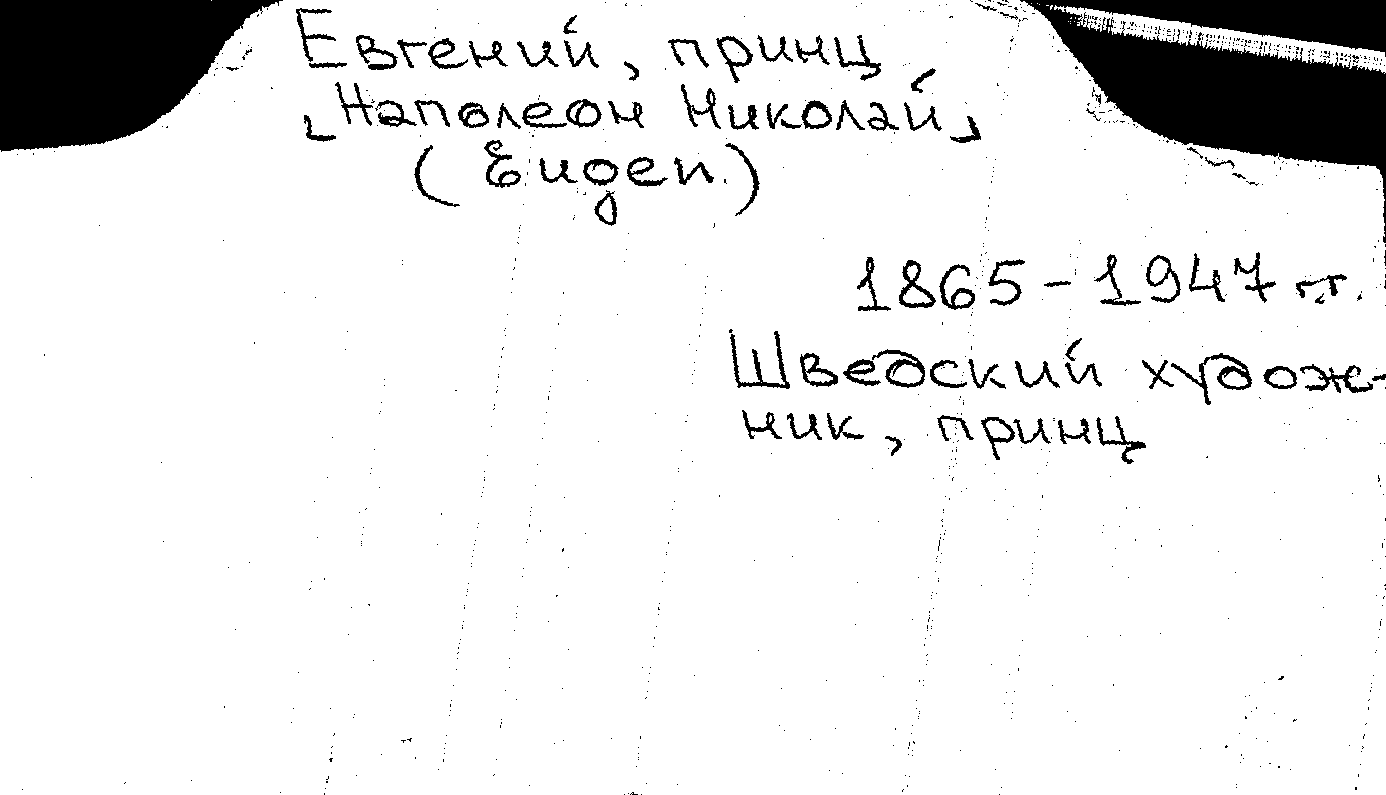 Евгений, принц
⌞Наполеон Николай⌟
(Eugen)
1865-1947 гг.
Шведский худож-
ник, принц